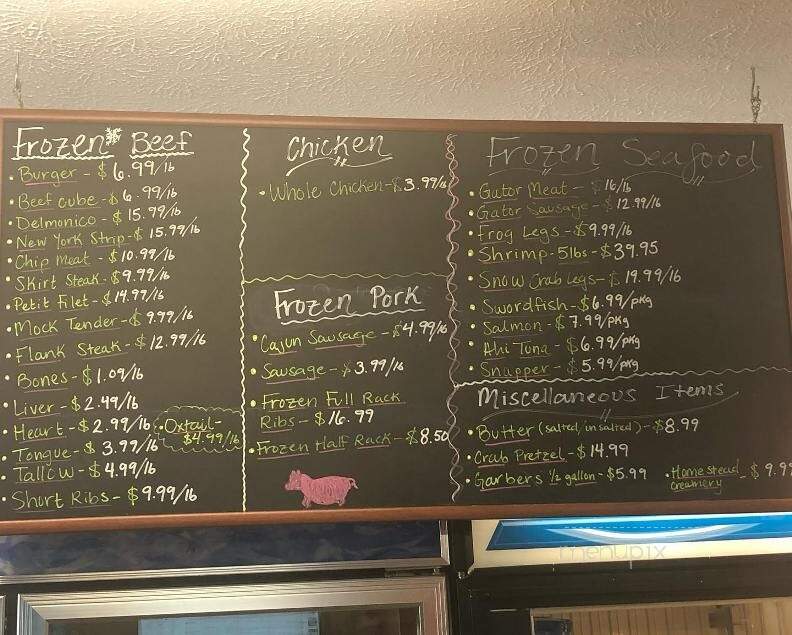 Frozen Beef
• Burger - $6.99/lb
• Beef cube - $6.99/lb
• Delmonico - $15.99/lb
• New York Strip - $15.99/lb
• Chip Meat - $10.99/lb
• Skirt Steak - $9.99/lb
• Petit Filet - $14.99/lb
• Mock Tender - $9.99/lb
• Flank Steak - $12.99/lb
• Bones - $1.09/lb
• Liver - $2.49/lb
• Heart - $2.99/lb
• Oxtail -
$4.99/lb
• Tongue - $3.99/lb
• Tallow - $4.99/lb
• Short Ribs - $9.99/lb
Chicken
• Whole Chicken - $3.99/lb
Frozen Pork
• Cajun Sausage - $4.99/lb
• Sausage - $3.99/lb
• Frozen Full Rack
Ribs - $16.99
• Frozen Half Rack - $8.50
Frozen Seafood
• Gator Meat - $16/lb
• Gator Sausage - $12.99/lb
• Frog Legs - $9.99/lb
• Shrimp - 5lbs - $39.95
• Snow Crab Legs - $19.99/lb
• Swordfish - $6.99/pkg
• Salmon - $7.99/pkg
• Ahi Tuna - $6.99/pkg
• Snapper - $5.99/pkg
Miscellaneous Items
• Butter (salted/unsalted) - $8.99
• Crab Pretzel - $14.99
• Garbers 1/2 gallon - $5.99
• Homestead
Creamery - $9.99
menupix